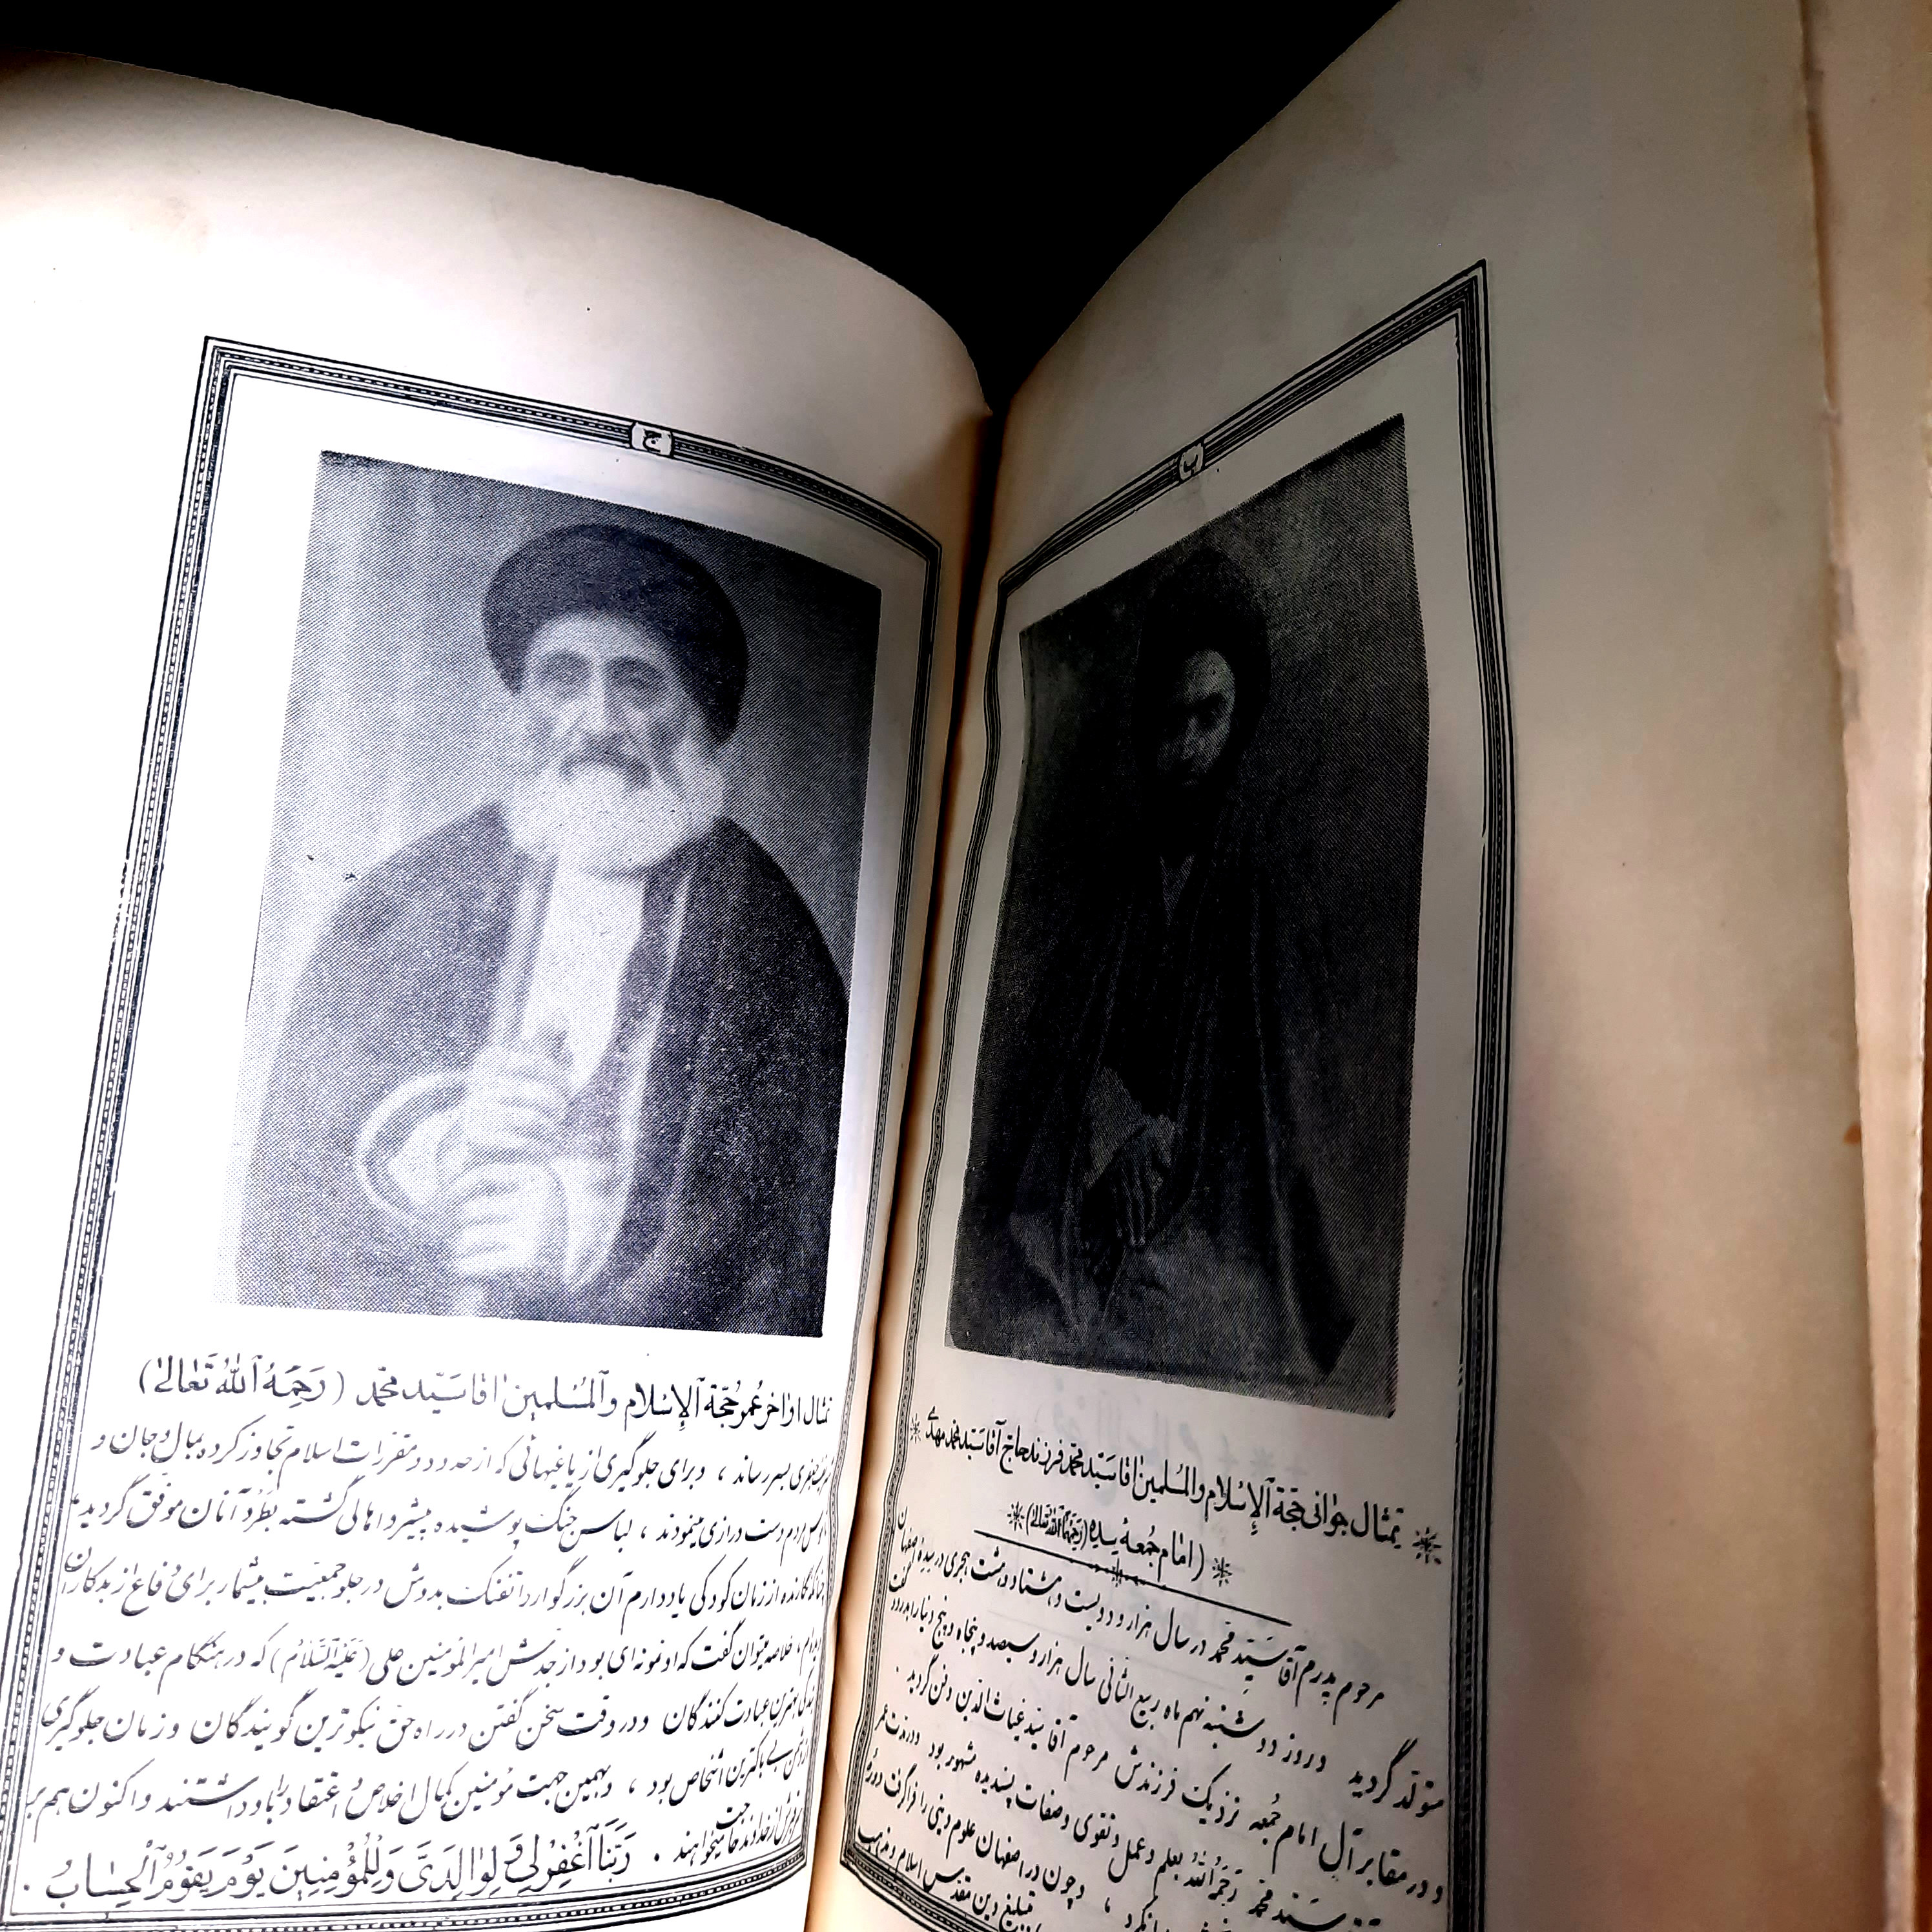 ب
تمثال جوانی حجة الإسلام والمسلمین آقا سید محمد فرزند حاج آقا سید محمد مهدی
(امام جمعهٔ سده (رحمهما الله تعالی)
مرحوم پدرم آقا سید محمد در سال هزار و دویست و هشتاد و هشت هجری در سده اصفهان
متولد گردید و روز دوشنبه نهم ماه ربیع الثانی سال هزار و سیصد و پنجاه و پنج دنیا را بدرود گفت
و در مقابر آل امام جمعه نزدیک فرزندش مرحوم آقا سید غیاث الدین دفن گردید .
سید محمد رحمه الله بعلم و عمل و تقوی و صفات پسندیده مشهور بود و در مدت عمر
و چون در اصفهان علوم دینی را فرا گرفت دورهٔ
تبلیغ دین مقدس اسلام و مذهب
ج
تمثال اواخر عمر حجة الإسلام والمسلمین آقا سید محمد (رحمة الله تعالی)
بسر رساند ، و برای جلوگیری از یاغیهائی که از حدود مقررات اسلام تجاوز کرده بمال و جان و
مردم دست درازی مینمودند ، لباس جنگ پوشیده پیشرو اهالی گشته بطرد آنان موفق گردید
نگارنده از زمان کودکی یاد دارم آن بزرگوار را تفنگ بدوش در جلو جمعیت بیشمار برای دفاع از بدکاران
خلاصه میتوان گفت که او نمونه ای بود از جدش امیرالمؤمنین علی (علیه السلام) که در هنگام عبادت و
بندگی بهترین عبادت کنندگان و در وقت سخن گفتن در راه حق نیکوترین گویندگان و زمان جلوگیری
بی باکترین اشخاص بود ، و بهمین جهت مؤمنین کمال اخلاص و اعتقاد را باو داشتند و اکنون هم بر
از خداوند حاجت میخواهند . ربنا اغفر لی و لوالدی و للمؤمنین یوم یقوم الحساب .